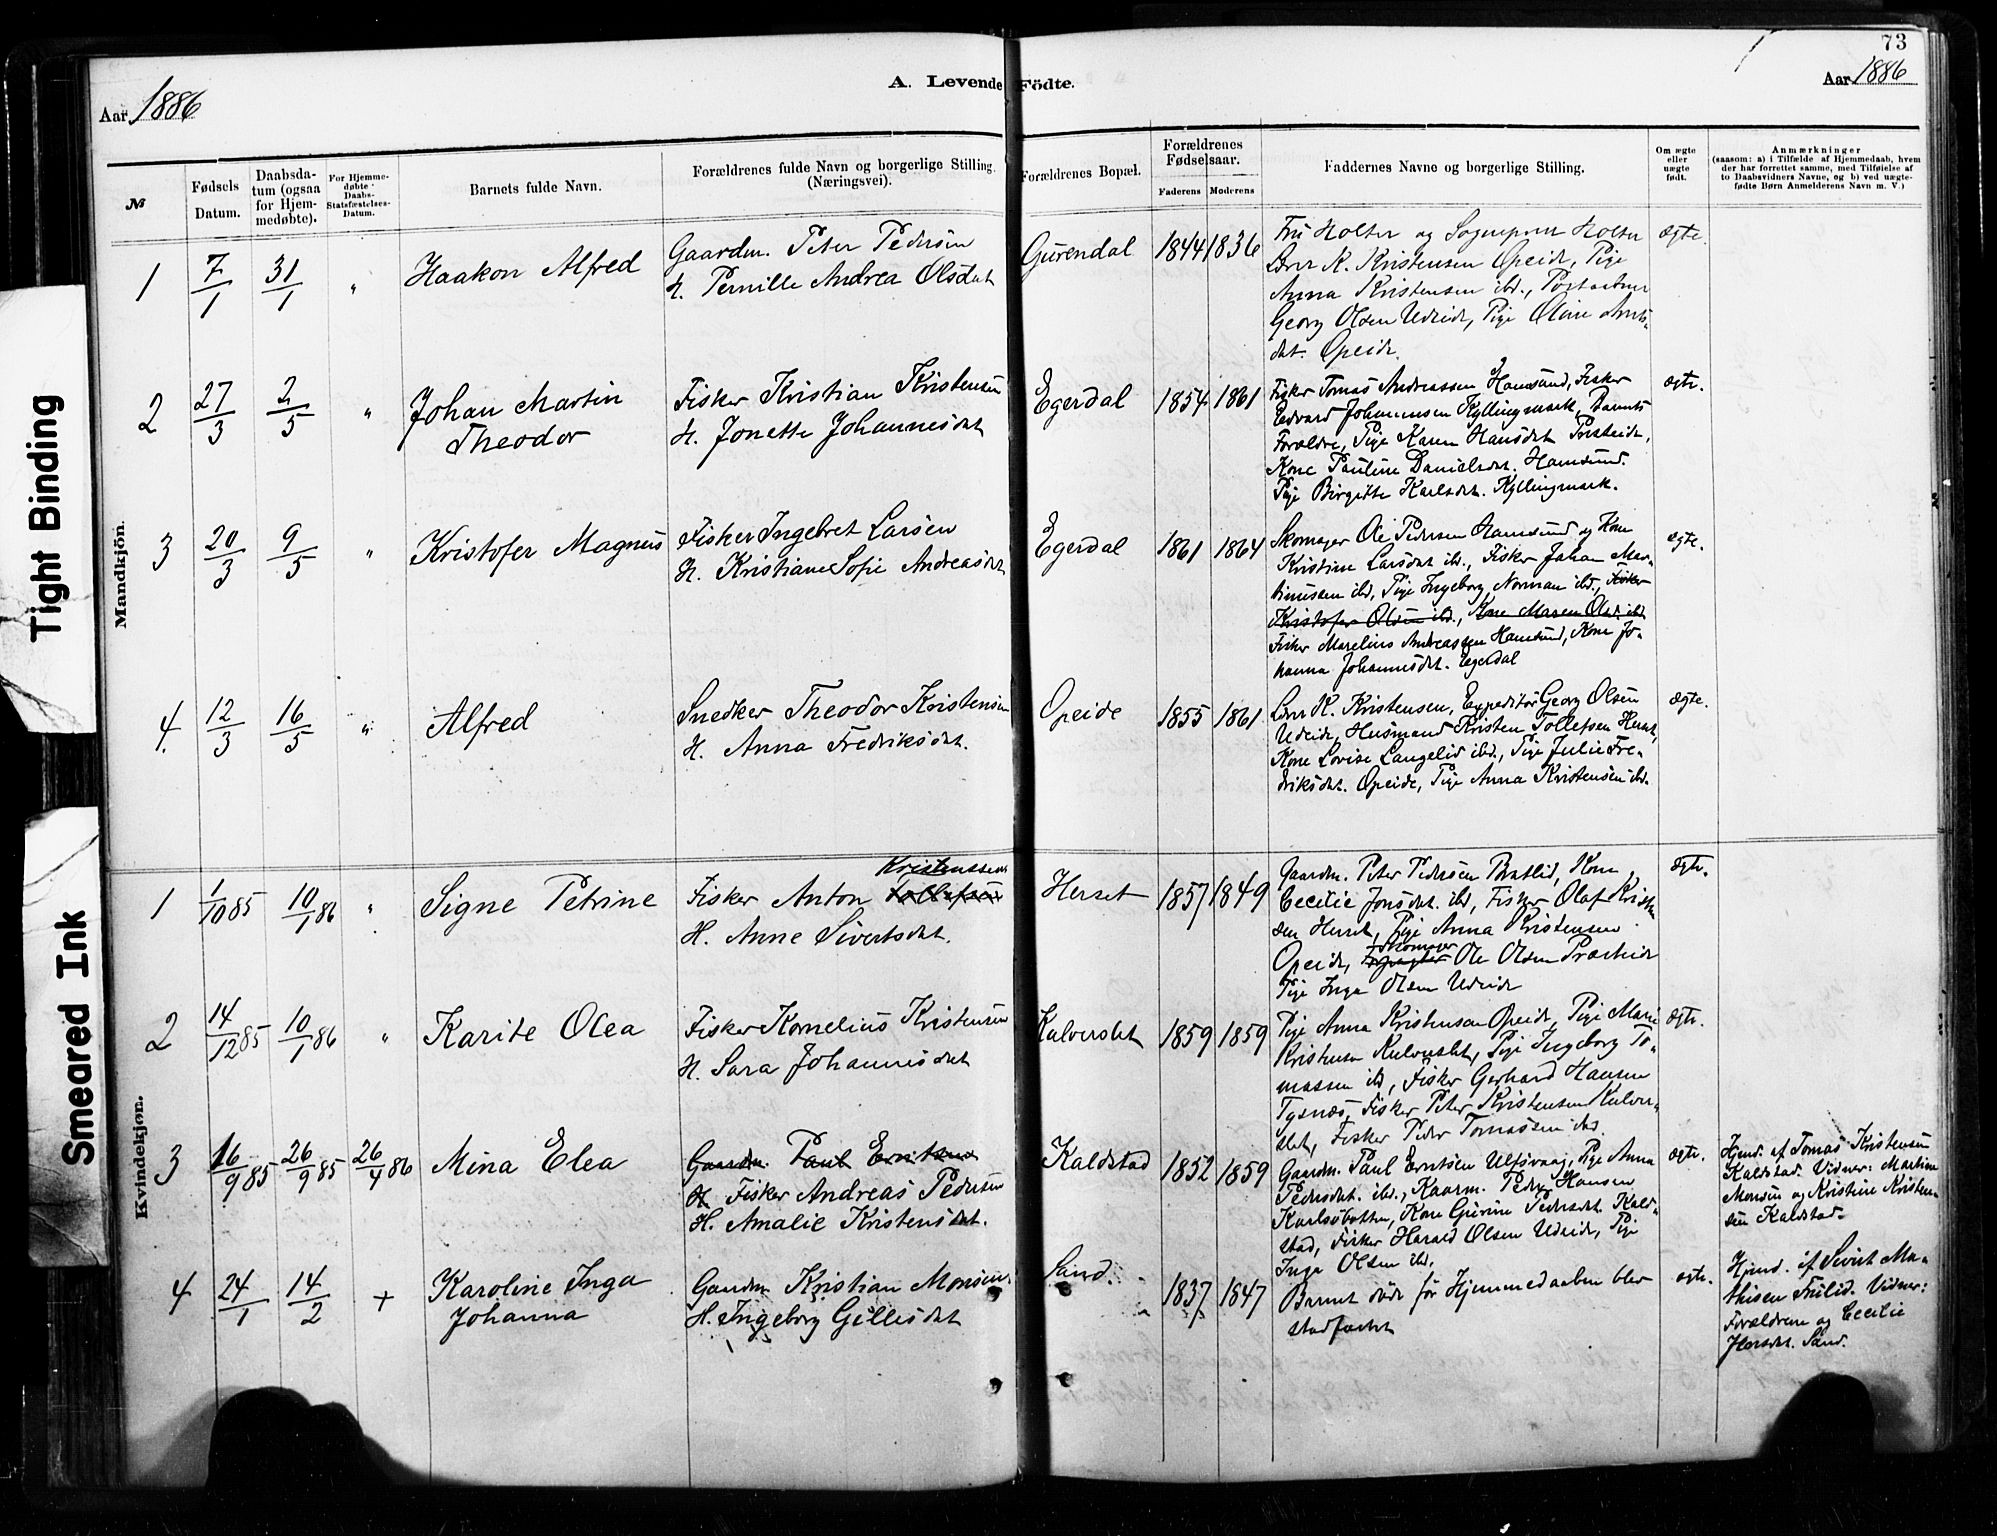 73
Aar 1886
A. Levende Födte.
Aar 1886
№
Fødsels Datum.
Daabsdatum (ogsaa for Hjemmedøbte).
For Hjemmedøbte Daabs-Statsfæstelses-Datum.
Barnets fulde Navn.
Forældrenes fulde Navn og borgerlige Stilling. (Næringsvei).
Forældrenes Bopæl.
Forældrenes Fødselsaar.
Faderens
Moderens
Faddernes Navne og borgerlige Stilling.
Om ægte eller uægte født.
Anmærkninger
(saasom: a) i Tilfælde af Hjemmedaab, hvem
der har forrettet samme, med Tilføielse af
to Daabsvidners Navne, og b) ved uægte-
fødte Børn Anmelderens Navn m. V.)
Tight Binding
Smeared Ink
Mandkjön.
1 7/1 31/1 " Haakon Alfred
Gaardm. Peter Pedersen
H. Pernille Andrea Olsdat
Gurendal 1844 1836
Fru Holter og Sognepræst Holter
Lærer K. Kristensen Opeide, Pige
Anna Kristensen ibd.,
Georg Olsen Udeide, Pige Oline Arnts-
dat. Opeide.
ægte.
2 27/3 2/5 " Johan Martin
Theodor
Fisker Kristian Kristensen
H. Jonette Johannesdat
Egerdal 1854 1861
Fisker Tomas Andreassen Hamsund, Fisker
Edvard Johannesen Kyllingmark, Barnets
Forældre, Pige Karen Hansdat Presteide,
Kone Pauline Danielsdat. Hamsund.
Pige Birgitte Karlsdat. Kyllingmark.
ægte.
3 20/3 9/5 " Kristofer Magnus
Fisker Ingebret Larsen
H. Kristiane Sofie Andreasdat
Egerdal 1861 1864
Skomager Ole Pedersen Hamsund og Kone
Kristine Larsdat ibd., Fisker Johan Mar-
tinussen ibd, Pige Ingeborg Norman ibd., Fisker
Kristofer Olsen ibd., Kone Maren Olsd. ibd
Fisker Marelius Andreassen Hamsund, Kone Jo-
hanna Johannesdat. Egerdal
ægte.
4. 12/3 16/5 " Alfred
Snedker Theodor Kristensen
H. Anna Fredriksdat.
Opeide 1855 1861
Lærer K. Kristensen, Expeditør Georg Olsen
Udeide, Husmand Kristen Tollefsen Herset,
Kone Lovise Langelid ibd., Pige Julie Fre-
driksdat. Opeide, Pige Anna Kristensen ibd.
ægte.
Kvindekjøn.
1 1/10 85 10/1 86 " Signe Petrine
Kristenssen
Fisker Anton Tollefsen
H. Anne Sivertsdat.
Herset 1857 1849
Gaardm. Peter Pedersen Bratlid, Kone
Cecilie Jonsdat. ibd, Fisker Olaf Kristen-
sen Herset, Pige Anna Kristensen
Skomager
Opeide, Ole Olsen Præsteide
Pige Inga Olsen Udeide
ægte.
2 14/12 85 10/1 86 " Karite Olea
Fisker Kornelius Kristensen
H. Sara Johannesdat
Kalverslet 1859 1859
Pige Anna Kristensen Opeide, Pige Marie
Kristensen Kalverslet, Pige Ingeborg To-
massen ibd, Fisker Gerhard Hansen
Tysnes, Fisker Peter Kristensen Kalver-
slet, Fisker Peder Tomassen ibd.
ægte.
3 16/9 85 26/9 85 26/4 86 Mina Elea
Gaardm. Paul Erntsen
H. Fisker Andreas Pedersen
H. Amalie Kristensdat.
Kaldstad 1852 1859
Gaardm. Paul Erntsen Ulfsvaag, Pige Anna
Pedersdat. ibd., Kaarm. Peder Hansen
Karlsøbotten, Kone Gurine Pedersdat. Kald-
stad, Fisker Harald Olsen Udeide, Pige
Inga Olsen ibd.
ægte.
Hjmd. af Tomas Kristensen
Kaldstad. Vidner: Martin
Monsen og Kristine Kristen-
sen Kaldstad.
4 24/1 14/2 + Karoline Inga
Johanna
Gaardm Kristian Monsen
H. Ingeborg Gillisdat
Sand. 1837 1847
Barnet døde før Hjemmedaaben blev
stadfæstet
ægte.
Hjmd. af Sivert Ma-
thisen Vidner:
Forældrene og Cecilie
Sand.